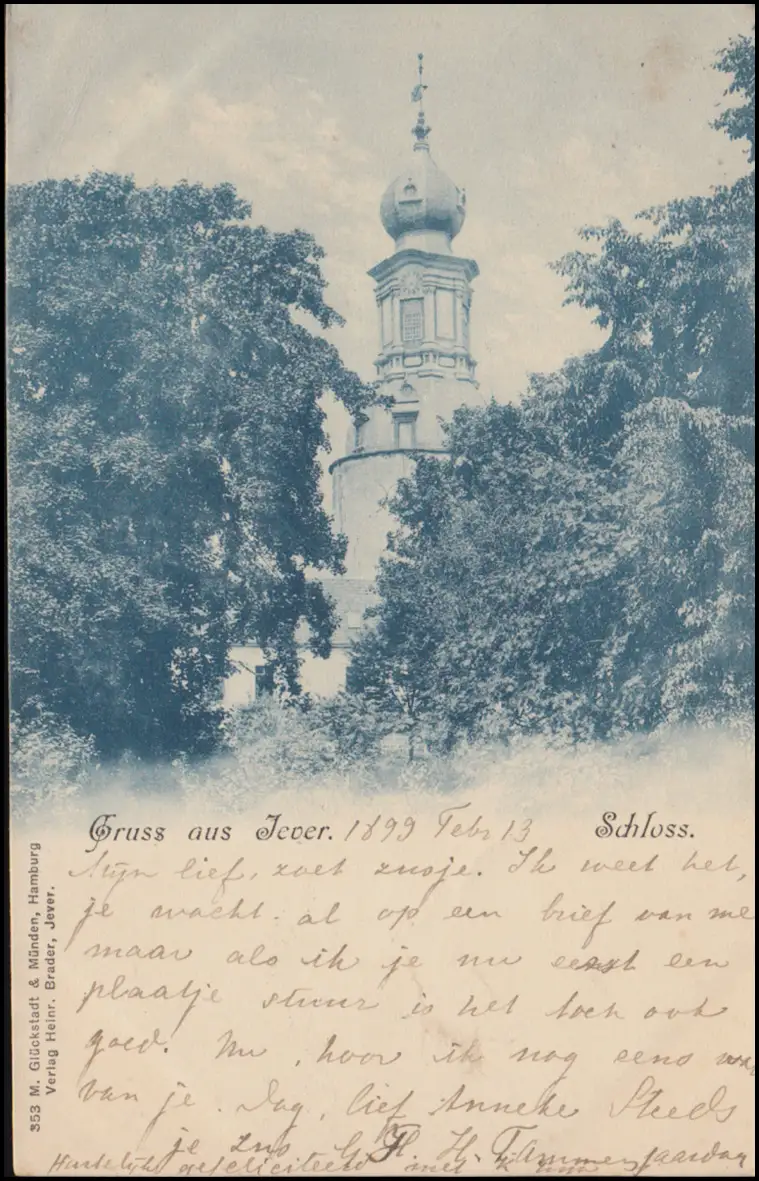 Gruss aus Jever. 1899 Febr 13 Schloss.
Mijn lief, zoet zusje. Ik weet het,
je wacht al op een brief van me
maar als ik je nu eerst een
plaatje stuur is het toch ook
goed. Nu, hoor ik nog eens wat
van je. Dag, lief Anneke Steeds
je zus H.
Hartelijk gefeliciteerd met
353 M. Glückstadt & Münden, Hamburg
Verlag Heinr. Brader, Jever.